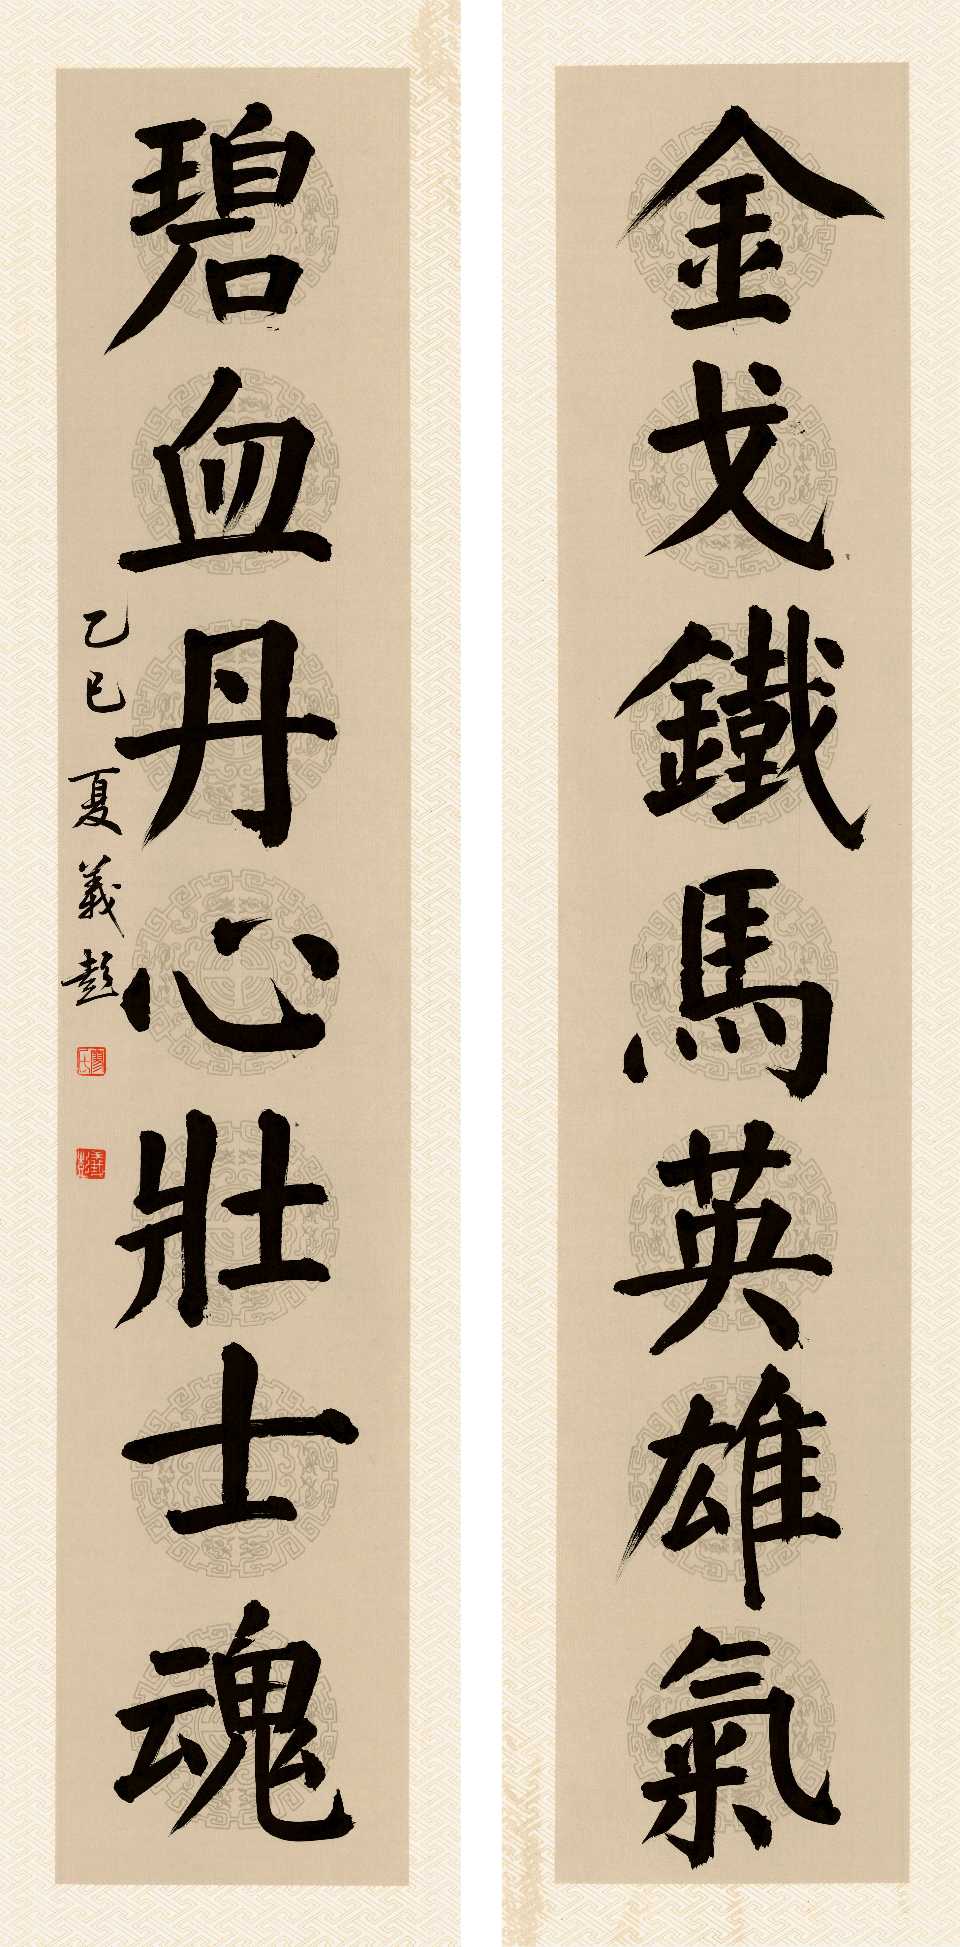 金戈鐵馬英雄氣
碧血丹心壯士魂
乙巳夏義彭